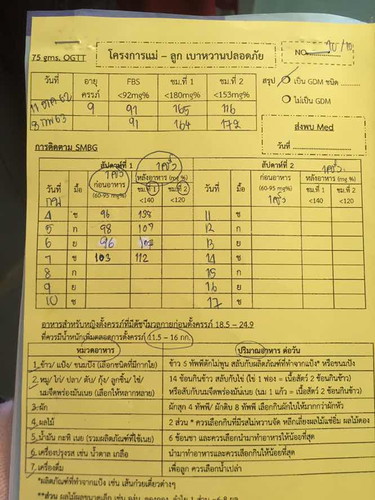 75 gms. OGTT
โครงการแม่ – ลูก เบาหวานปลอดภัย
NO
วันที่ อายุครรภ์ FBS <92mg% ชม.ที่ 1 <180mg% ชม.ที่ 2 <153mg%
สรุป เป็น GDM ชนิด
62 9 91 165 116
ไม่เป็น GDM
63 91 164 172
ส่งพบ Med
วันที่
การติดตาม SMBG
สัปดาห์ที่ 1 สัปดาห์ที่ 2
วันที่ มื้อ ก่อนอาหาร (60-95 mg%) หลังอาหาร (mg %) ชม.ที่ 1 <140 ชม.ที่ 2 <120 วันที่ มื้อ ก่อนอาหาร (60-95 mg%) หลังอาหาร (mg %) ชม.ที่ 1 <140 ชม.ที่ 2 <120
4 ช 96 138 11 ช
5 ก 98 107 12 ก
6 ย 96 107 13 ย
7 ช 103 112 14 ช
8 ก 15 ก
9 ย 16 ย
10 ช 17 ช
อาหารสำหรับหญิงตั้งครรภ์ที่มีดัชนีมวลกายก่อนตั้งครรภ์ 18.5 – 24.9
ที่ควรมีน้ำหนักเพิ่มตลอดการตั้งครรภ์ 11.5 – 16 กก.
หมวดอาหาร ปริมาณอาหาร ต่อวัน
1.ข้าว/ แป้ง/ ขนมปัง (เลือกชนิดที่มีกากใย) ข้าว 5 ทัพพีตักไม่พูน สลับกับผลิตภัณฑ์ที่ทำจากแป้ง* หรือขนมปัง
2.หมู/ ไก่/ ปลา/ ตับ/ กุ้ง/ ลูกชิ้น/ ไข่/ 14 ช้อนกินข้าว สลับกับไข่ (ไข่ 1 ฟอง = เนื้อสัตว์ 2 ช้อนกินข้าว)
นมจืดพร่องมันเนย (เลือกให้หลากหลาย) หรือสลับกับนมจืดพร่องมันเนย (นม 1 แก้ว = เนื้อสัตว์ 2 ช้อนกินข้าว)
3.ผัก ผักสุก 4 ทัพพี/ ผักดิบ 8 ทัพพี เลือกกินผักใบให้มากกว่าผักหัว
4.ผลไม้ 2 ส่วน * ควรเลือกกินที่มีรสไม่หวานจัด หลีกเลี่ยงผลไม้แช่อิ่ม ผลไม้ดอง
5.น้ำมัน กะทิ เนย (รวมผลิตภัณฑ์ที่ใช้เนย) 6 ช้อนชา และควรเลือกนำมาทำอาหารให้น้อยที่สุด
6.เครื่องปรุงรส เช่น น้ำตาล เกลือ นำมาทำอาหารและควรเลือกกินให้น้อยที่สุด
7.เครื่องดื่ม เพื่อลูก ควรเลือกน้ำเปล่า
*ผลิตภัณฑ์ที่ทำจากแป้ง เช่น เส้นก๋วยเตี๋ยวต่างๆ